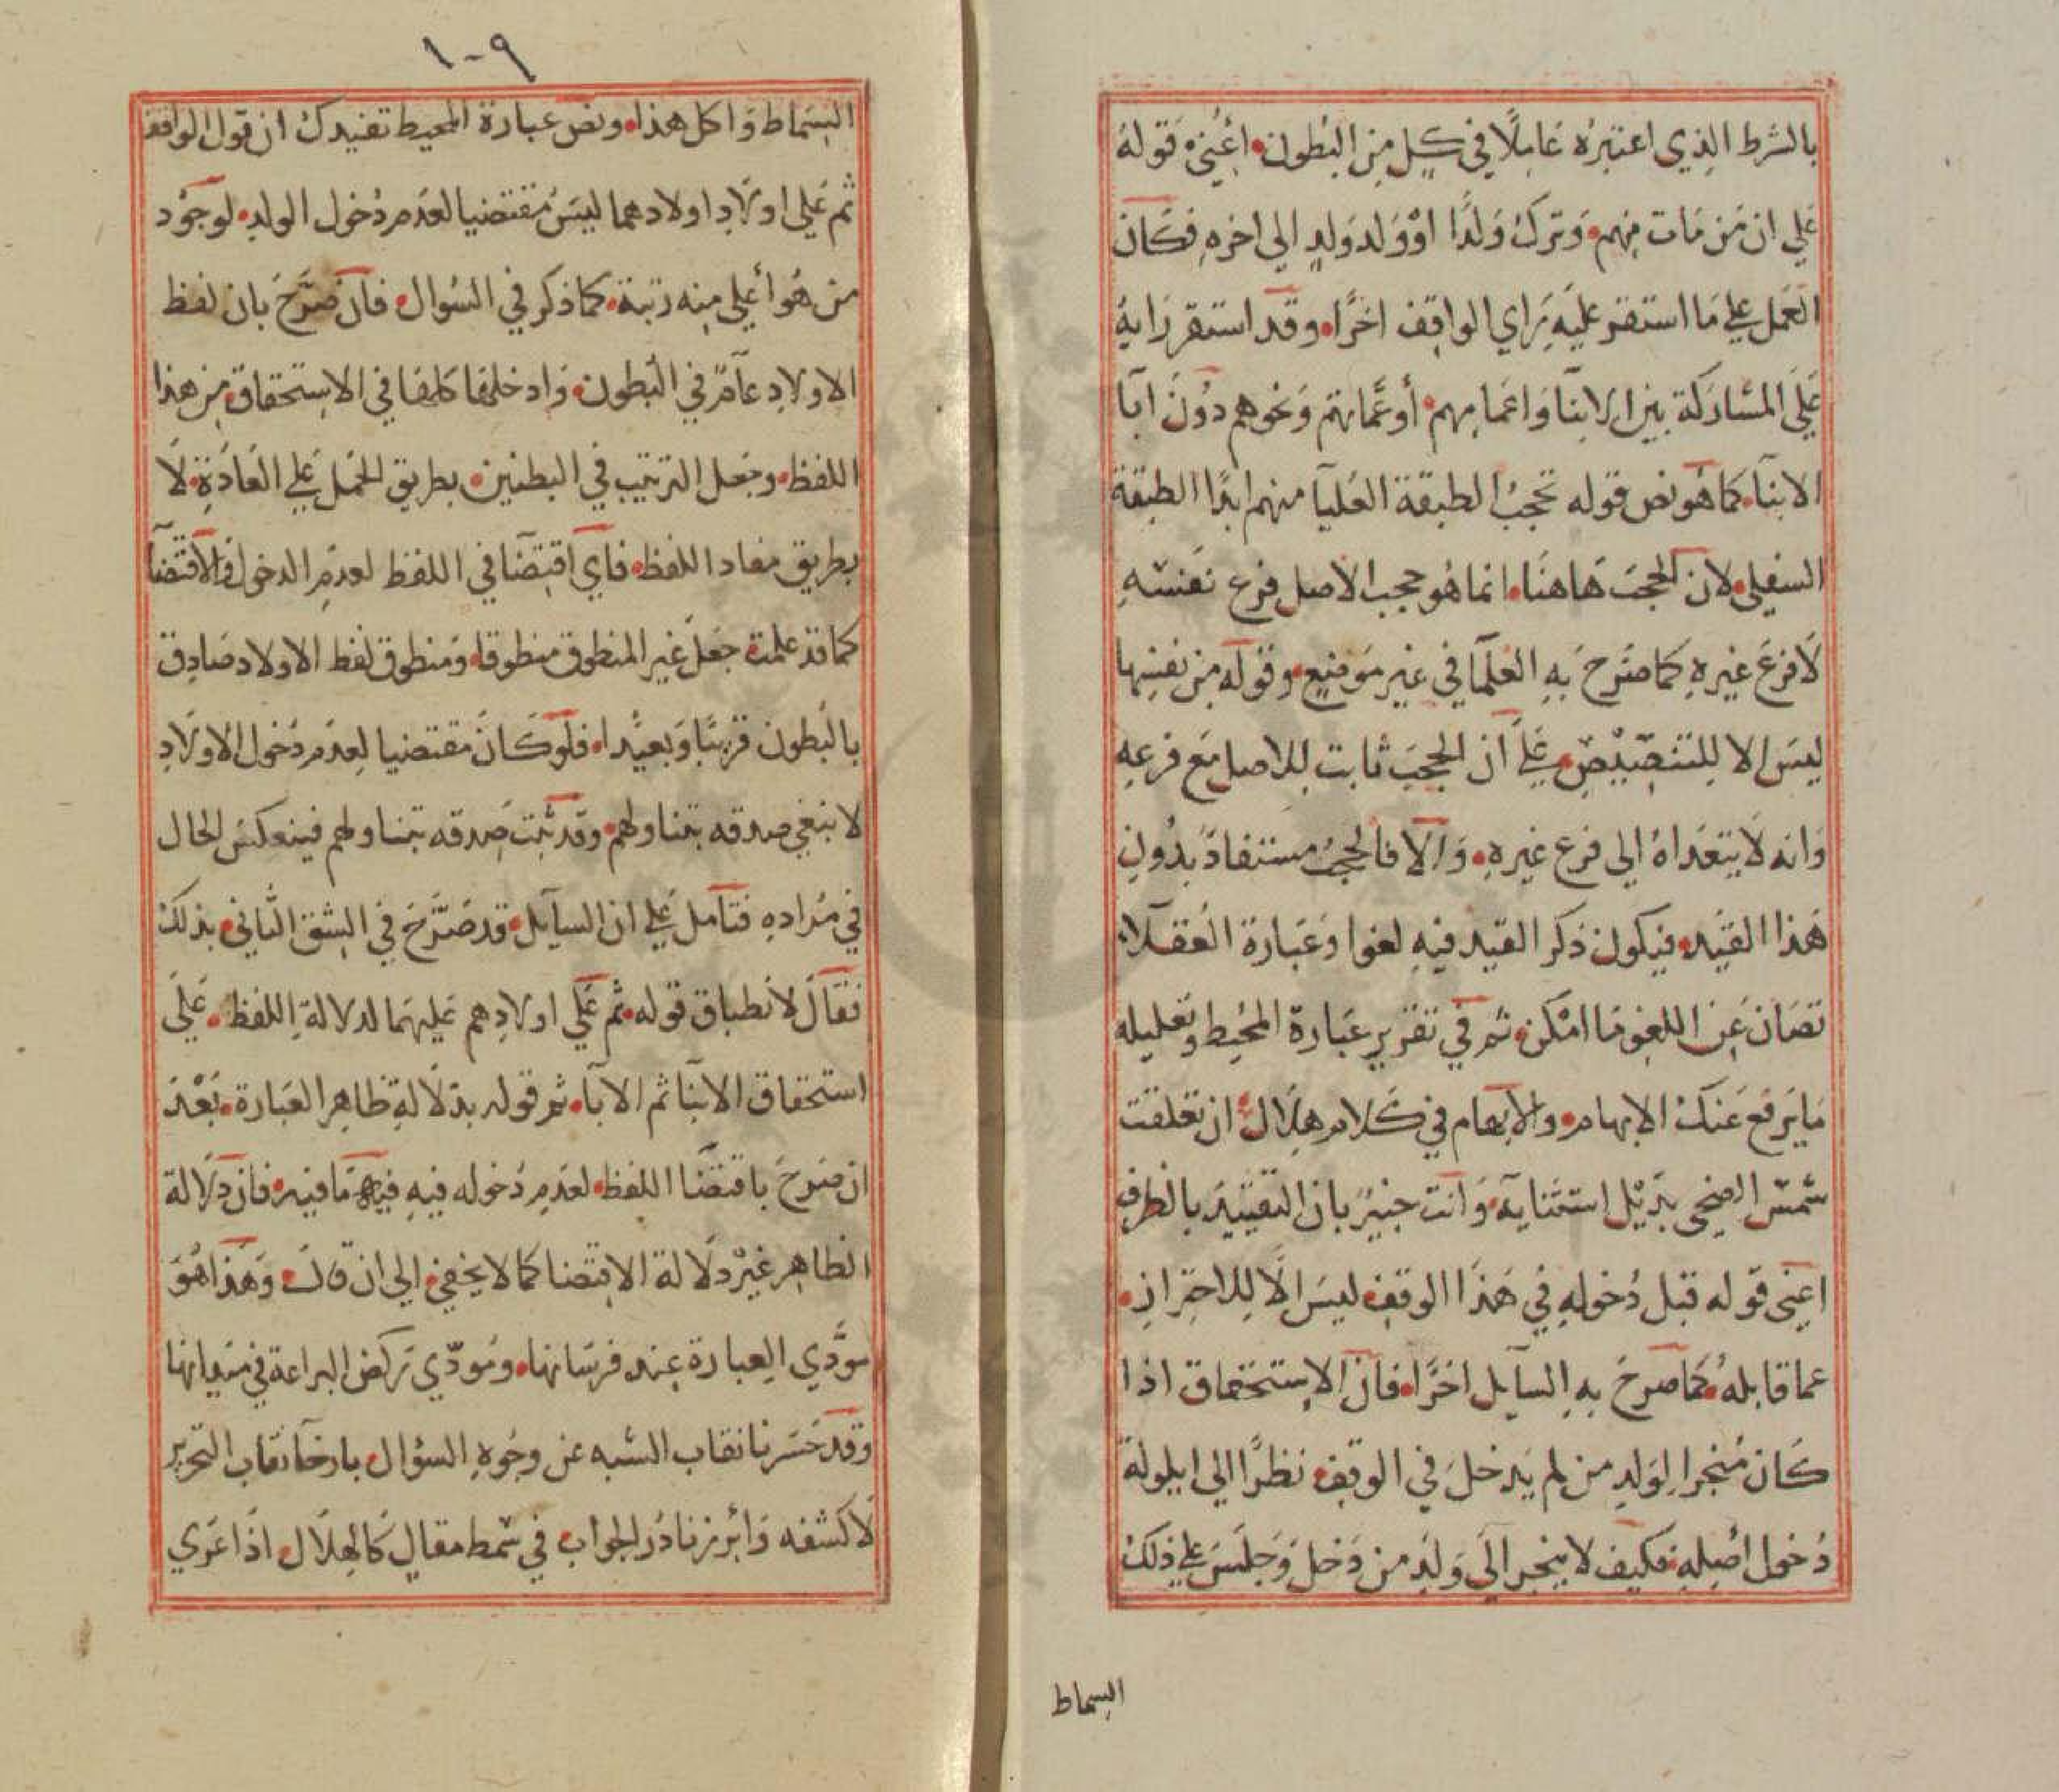 بالشرط الذي اعتبره عاملًا في كل من البطون اعني قوله
علي ان من مات منهم وترك ولدًا او ولد ولد الي اخره فكان
العمل علي ما استقر عليه راي الواقف اخرًا وقد استقر رايه
علي المشاركة بين الابنا واعمامهم أو عماتهم ونحوهم دون ابا
الابنآ كما هو نص قوله تحجب الطبقة العليا منهم ابدًا الطبقة
السفلي لان الحجب هاهنا انما هو حجب الاصل فرع نفسه
لا فرع غيره كما صرح به العلمآ في غير موضع وقوله من نفسها
ليس الا للتنصيص علي ان الحجب ثابت للاصل مع فرعه
وانه لا يتعداه الي فرع غيره والا فالحجب مستفاد بدون
هذا القيد فيكون ذكر القيد فيه لغوا وعبارة العقلاء
تصان عن اللغو ما امكن ثم في تقرير عبارة المحيط وتعليله
ما يرفع عنك الابهام والايهام في كلام هلال ان تعلقت
شمس الضحى بذيل استثنايه وانت خبير بان التقييد بالظرف
اعنى قوله قبل دخوله في هذا الوقف ليس الا للاحتراز
عما قابله كما صرح به السآيل اخرًا فان الاستحقاق اذا
كان منجرا لولد من لم يدخل في الوقف نظرًا الي ايلولة
دخول اصله فكيف لا ينجر الي ولد من دخل وجلس علي ذلك
السماط
١٠٩
السماط واكل هذا ونص عبارة المحيط تفيدك ان قول الواقف
ثم علي اولاد اولادهما ليس مقتضيا لعدم دخول الولد لوجود
من هو أعلي منه رتبة كما ذكر في السوال فان صرح بان لفظ
الاولاد عآم في البطون وادخلها كلها في الاستحقاق من هذا
اللفظ وجعل الترتيب في البطنين بطريق الحمل علي العادة لا
بطريق مفاد اللفظ فاي اقتضآ في اللفظ لعدم الدخول والاقتضآ
كما قد علمت جعل غير المنطوق منطوقا ومنطوق لفظ الاولاد صادق
بالبطون قريبًا وبعيدا فلو كان مقتضيا لعدم دخول الاولاد
لا نبغي صدقه بتناولهم وقد ثبت صدقه بتناولهم فينعكس الحال
في مراده فتامل علي ان السآيل قد صرح في الشق الثاني بذلك
فقال لانطباق قوله ثم علي اولادهم عليهما لدلالة اللفظ علي
استحقاق الابنآ ثم الابا ثم قوله بدلالة ظاهر العبارة بعد
ان صرح باقتضآ اللفظ لعدم دخوله فيه فيه ما فيه فان دلالة
الظاهر غير دلالة الاقتضا كما لا يخفي الي ان قال وهذا هو
مودي العبارة عند فرسانها ومودّي تركض البراعة في ميدانها
وقد حسرنا نقاب الشبه عن وجوه السؤال بارخآ نقاب التحرير
لا كشفه وابرزنا در الجواب في سمط مقال كالهلال اذا عري